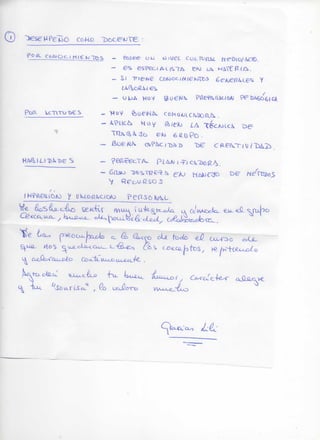 ① DESEMPEÑO COMO DOCENTE:
POR CONOCIMIENTOS - POSEE UN NIVEL CULTURAL MEDIO/ALTO.
- ES ESPECIALISTA EN LA MATERIA.
- SI TIENE CONOCIMIENTOS GENERALES Y
LABORALES
- UNA MUY BUENA PREPARACIÓN PEDAGÓGICA
POR ACTITUDES - MUY BUENA COMUNICADORA.
- APLICA MUY BIEN LA TÉCNICA DE
TRABAJO EN GRUPO.
- BUENA CAPACIDAD DE CREATIVIDAD.
HABILIDADES - PERFECTA PLANIFICADORA.
- GRAN DESTREZA EN MANEJO DE METODOS
Y RECURSOS
IMPRESIÓN Y VALORACION PERSONAL
Me has hecho sentir muy integrada y cómoda en el grupo
Cercana, buena disponibilidad, colaboradora.
Te has preocupado a lo largo de todo el curso de
que nos quedaran claros los conceptos, repitiendo
y aclarando continuamente.
Agradecer mucho tu buen humor, carácter alegre
y tu "sonrisa", lo valoro mucho
Gracias Lili